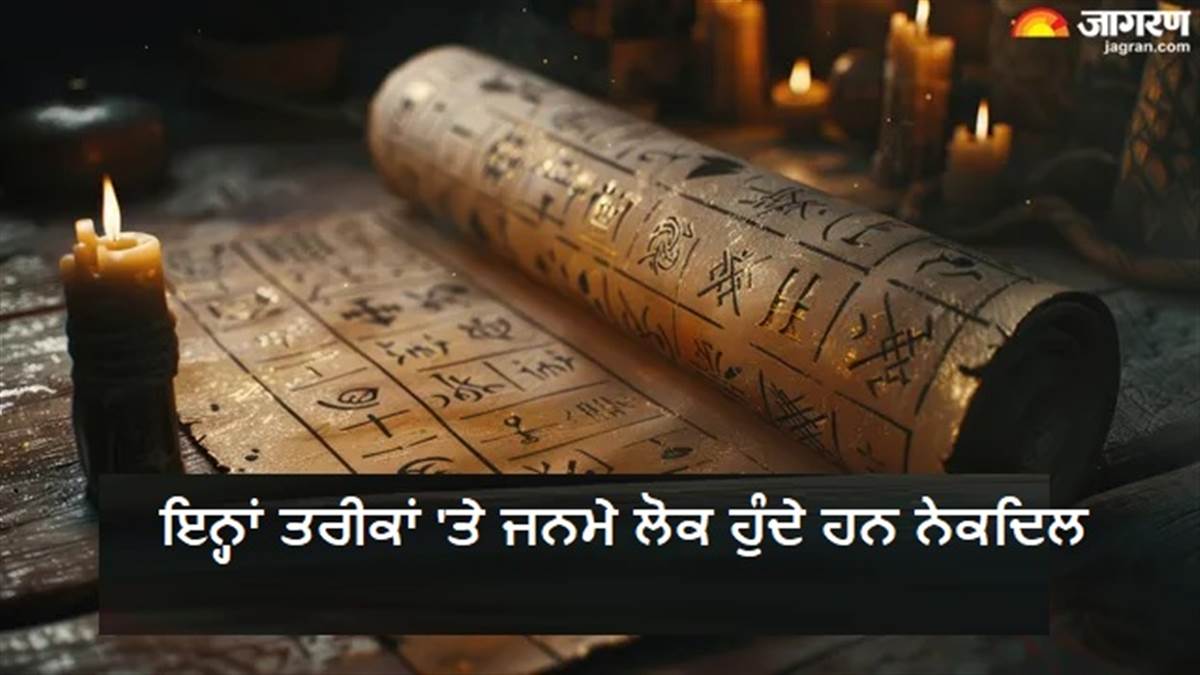 जागरण
jagran.com
ਇਨ੍ਹਾਂ ਤਰੀਕਾਂ 'ਤੇ ਜਨਮੇ ਲੋਕ ਹੁੰਦੇ ਹਨ ਨੇਕਦਿਲ